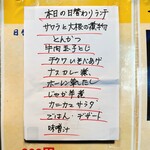 本日の日替わりランチ
サワラと大根の煮物
とんかつ
牛肉玉子とじ
チクワいそべあげ
ナスカレー煮
ホーレン草したし
じゃが芋煮
カニカマサラダ
ごはん デザート
味噌汁